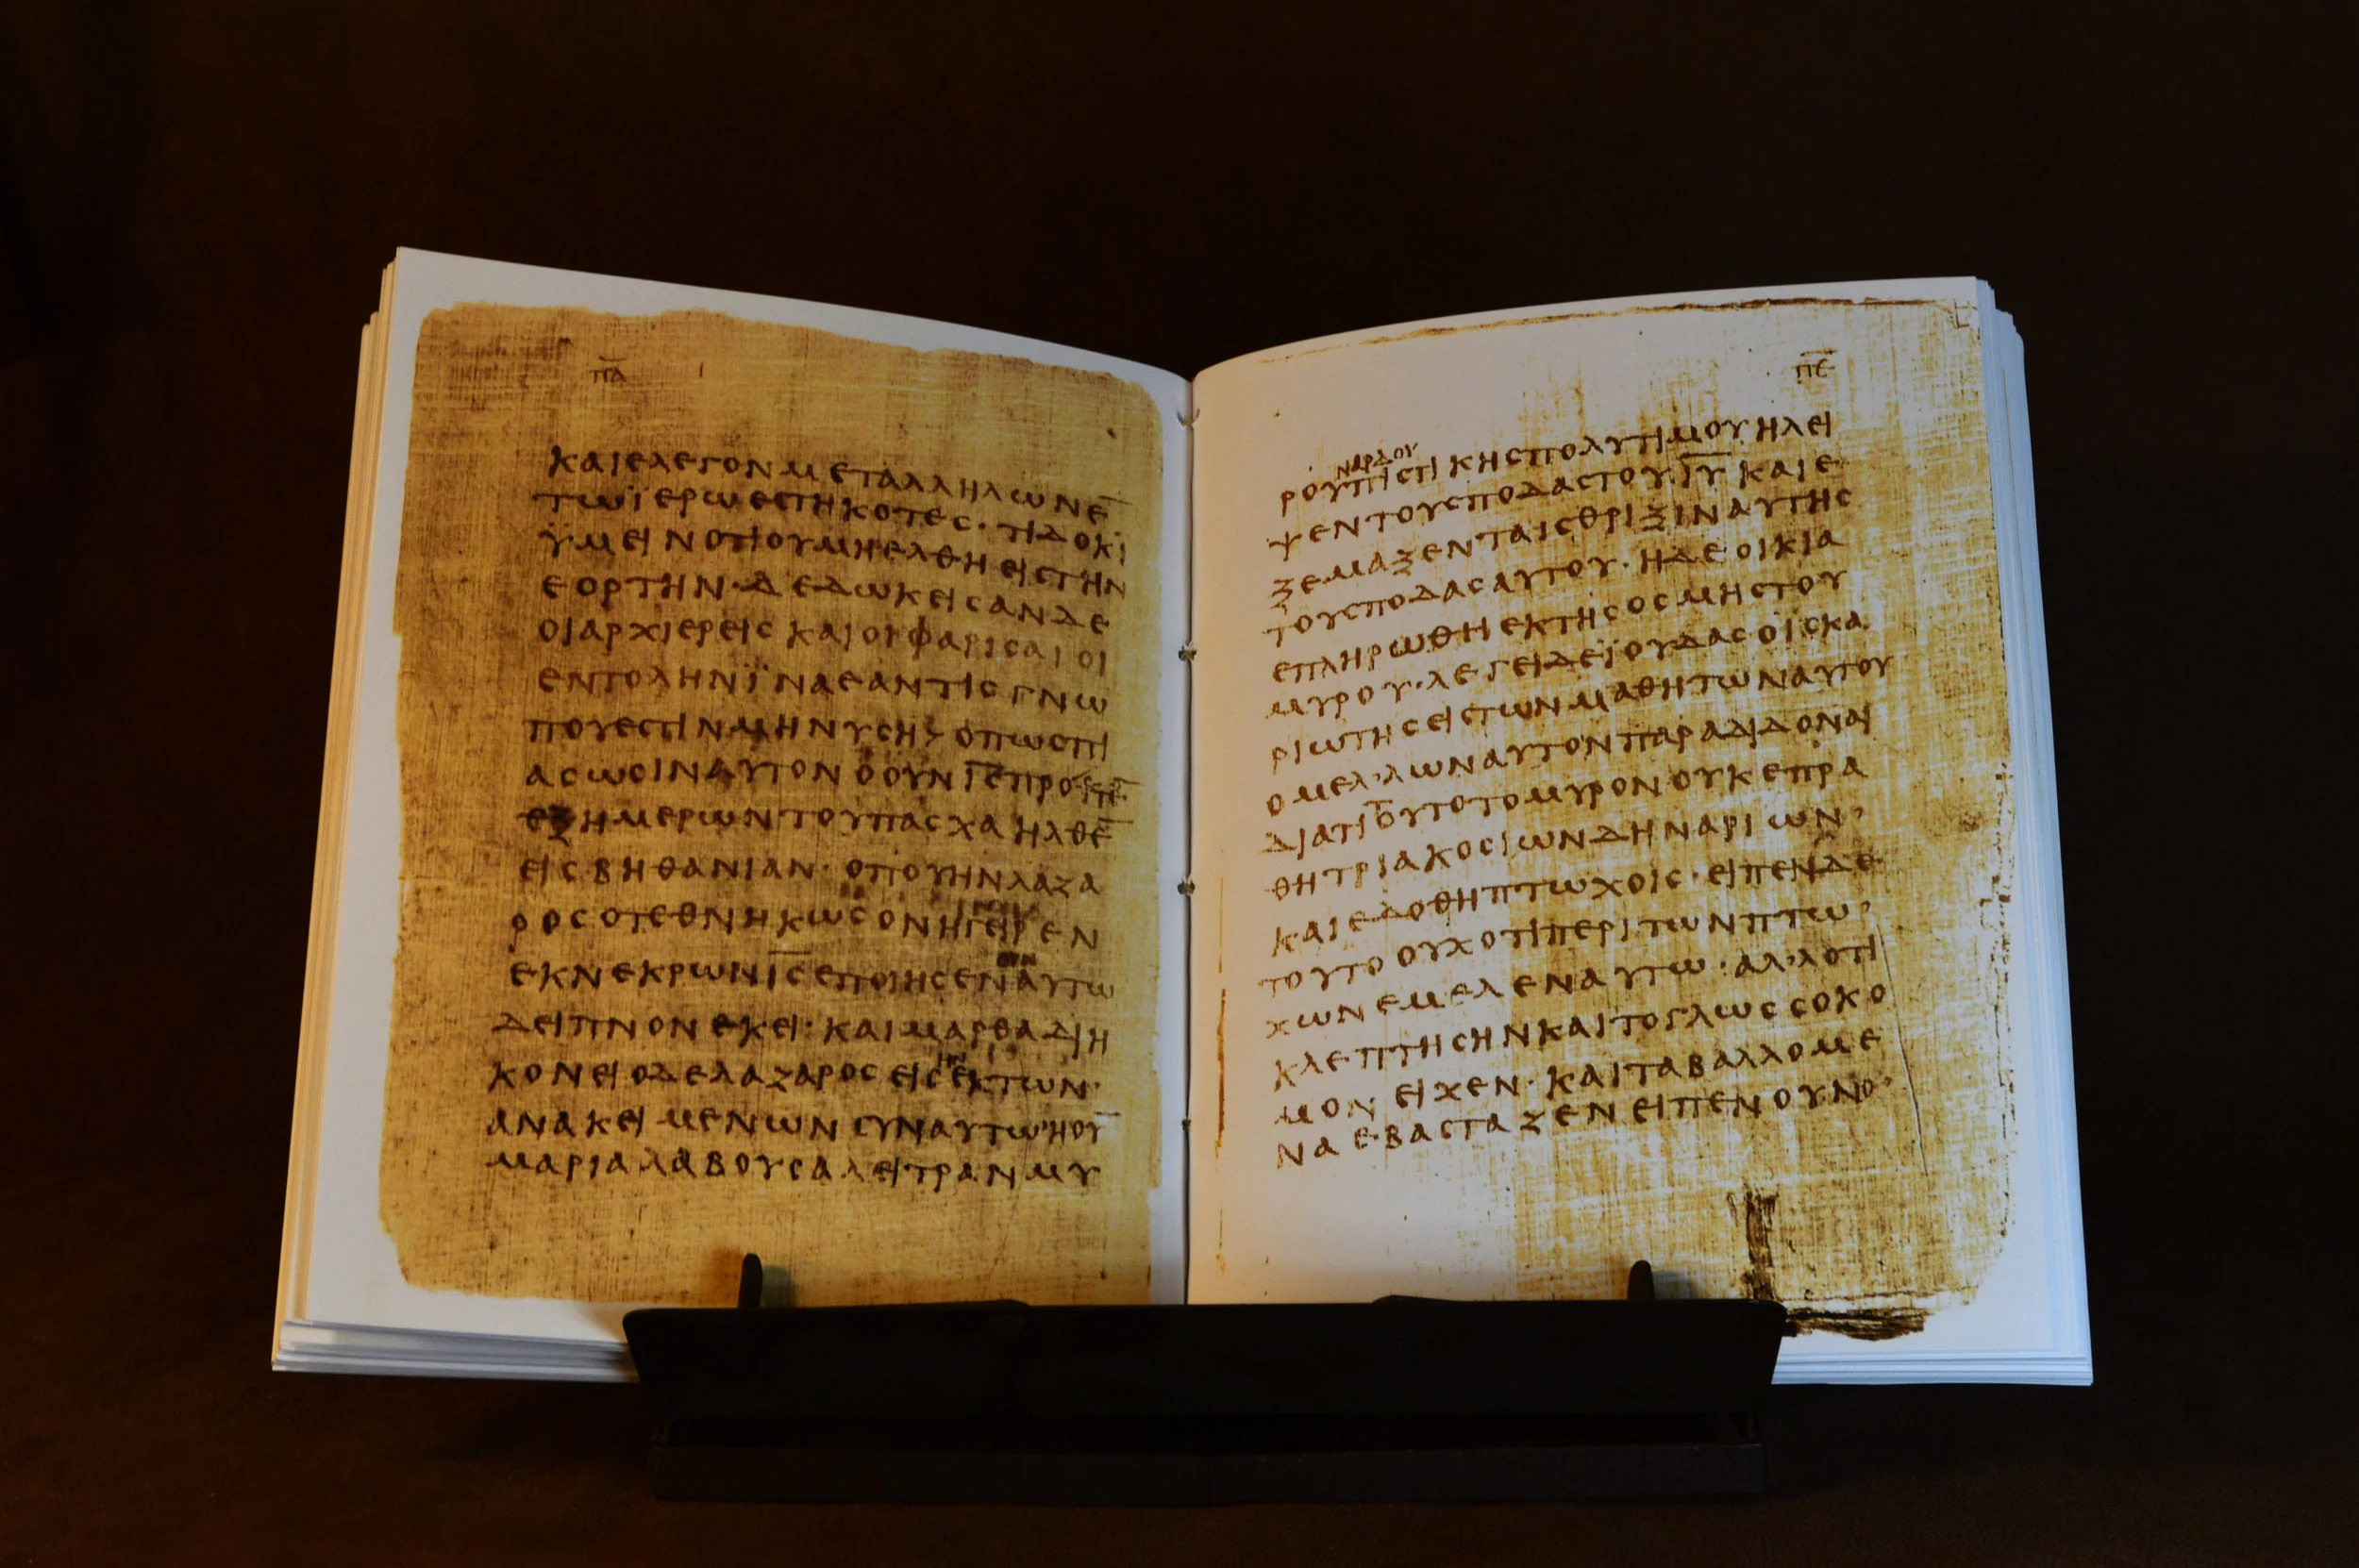 π̅α̅
και ελεγον μεταλληλων ε̅
τω ϊερω εστηκοτες · τι δοκι
ϋμειν οτι ου μη ελθη εις την
εορτην · δεδωκεισαν δε
οι αρχιερεις και οι φαρισαιοι
εντολην ϊνα εαν τις γνω
που εστιν μηνυση > οπως πι
ασωσιν αυτον ο ουν ι̅ς̅ προ
εξ ημερων του πασχα ηλθε̅
εις βηθανιαν · οπου ην λαζα
ρος ο τεθνηκως ον ηγειρεν
εκ νεκρων ι̅ς̅ εποιησεν αυτω
δειπνον εκει · και μαρθα διη
ην
κονει ο δε λαζαρος εις εκ των ·
ανακειμενων συν αυτω · η ου̅
μαρια λαβουσα λειτραν μυ
π̅ε̅
ναρδου
ρου πιστικης πολυτιμου ηλει
ψεν τους ποδας του ι̅υ̅ και ε
ξεμαξεν ταις θριξιν αυτης
τους ποδας αυτου · η δε οικια
επληρωθη εκ της οσμης του
μυρου · λεγει δε ϊουδας ο ϊσκα
ριωτης εις των μαθητων αυτου
ο μελ’λων αυτον παραδιδοναι
διατι τουτο το μυρον ουκ επρα
θη τριακοσιων δηναριων ’
και εδοθη πτωχοις · ειπεν δε
τουτο ουχ οτι περι των πτω ’
χων εμελεν αυτω · αλ’λ οτι
κλεπτης ην και το γλωσσοκο
μον ειχεν · και τα βαλλομε
να εβασταζεν ειπεν ουν ο ’